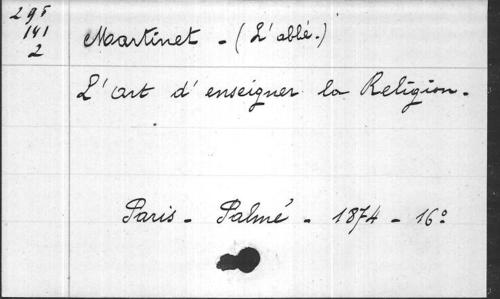 295
141
2
Martinet - (L'abbé.)
L'art d'enseigner la Religion.
Paris - Palmé - 1874 - 16º